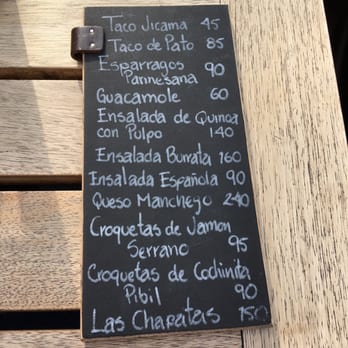 Taco Jicama 45
Taco de Pato 85
Esparragos
Parmesana 90
Guacamole 60
Ensalada de Quinoa
con Pulpo 140
Ensalada Burrata 160
Ensalada Española 90
Queso Manchego 240
Croquetas de Jamon
Serrano 95
Croquetas de Cochinita
Pibil 90
Las Chapatas 150